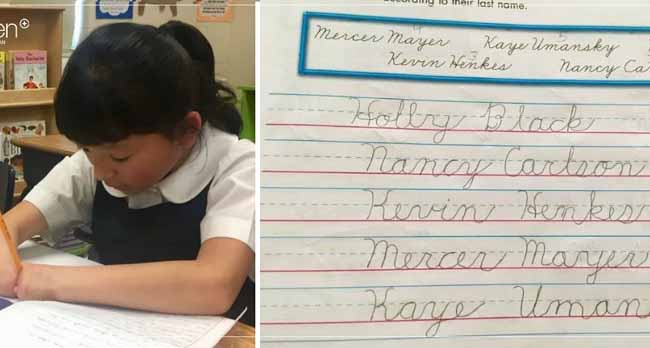 en+
according to their last name.
Mercer Mayer Kaye Umansky
Kevin Henkes Nancy Ca
Holly Black
Nancy Carlson
Kevin Henkes
Mercer Mayer
Kaye Uman